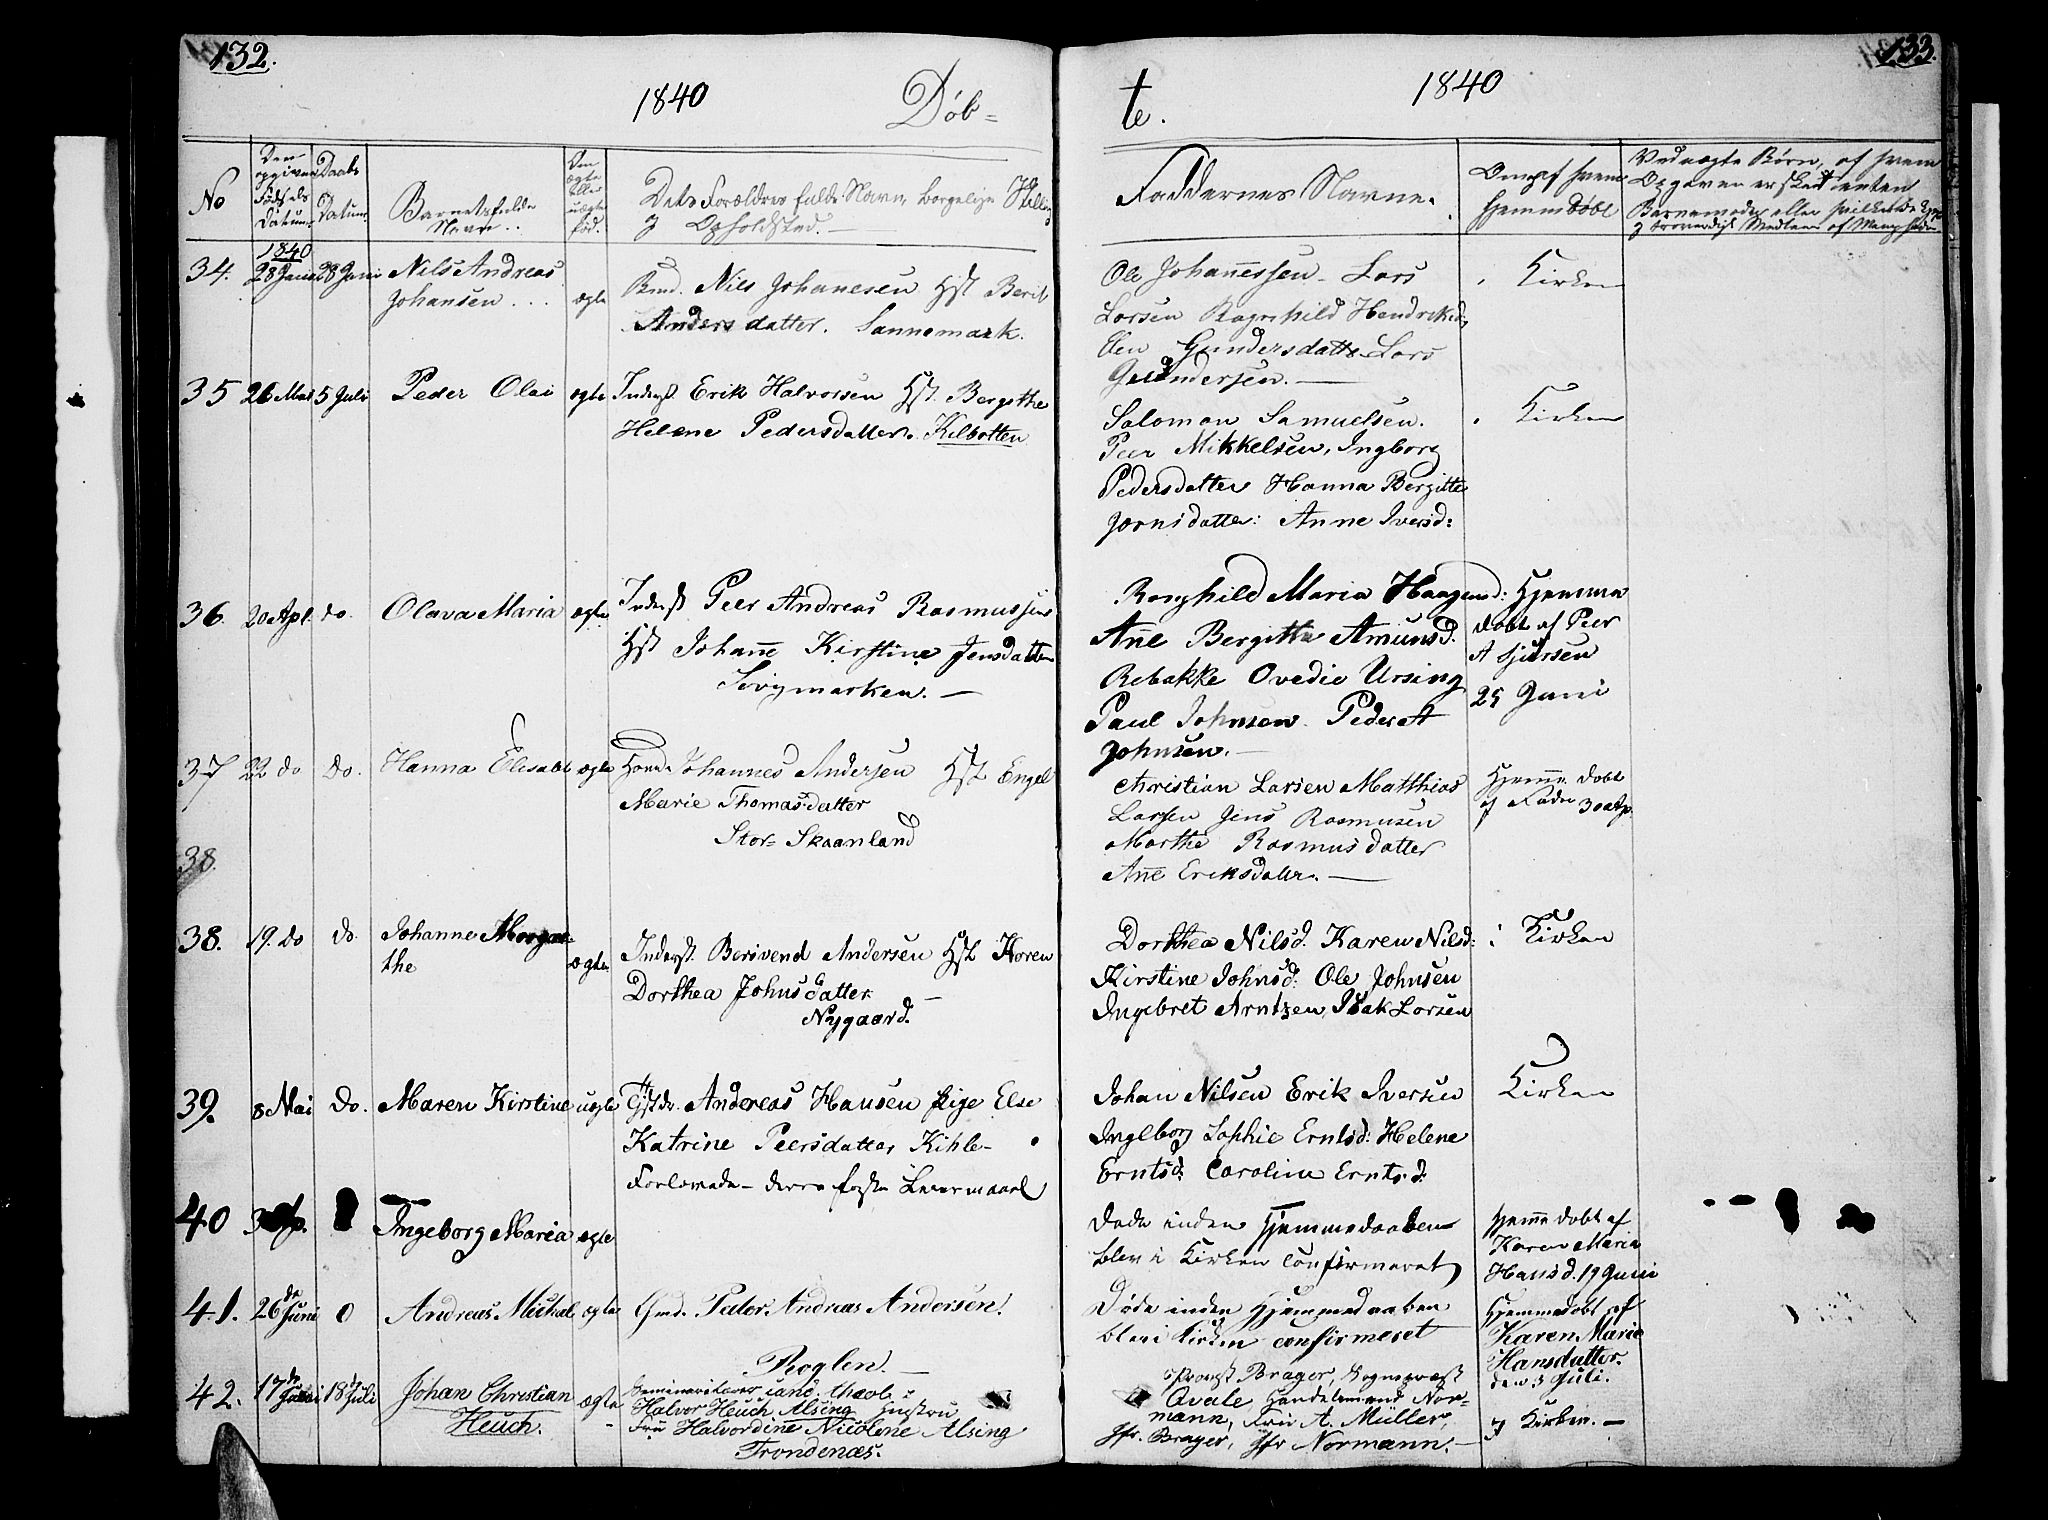 132.
1840
Døb=
No
Den
opgivne
Fødsels
Datum
Daabs
Datum
Barnets fulde
Navn..
Om
ægte
eller
uægte
fød.
Dets Forældres fulde Navn, borgelige Stilling
og Opholdsted.—
1840
34. 28 Juni Nils Andreas
Johansen... ægte
Bmd. Nils Johanesen Hst Berit
Andersdatter. Sannemark.
35 26 Mai 5 Juli Peder Olai ægte Inderst. Erik Halvorsen Hst. Bergithe
Helene Pedersdatter. Kilbotten
36. 20 Apl. do. Olava Maria ægte Inderst Peer Andreas Rasmussen
Hst Johanne Kirstine Jensdatter
37 22 do do. Hanna Elisabt ægte Johannes Andersen Hst Engel
Marie Thomasdatter
Stor= Skaanland
38.
38. 19. do do. Johanne Margre=
the ægte
Inderst. Berivend Andersen Hst Karen
Dorthea Johnsdatter —
Nygaard.
39. 8 Mai Do. Maren Kirstine uægte Andreas Hansen Pige Else
Katrine Peersdatter Kihle-
Forlovede - deres første Leiermaal
40 Ingeborg Maria ægte
41. 26de Juni 0 Andreas Michal ægte Gmd. Peder Andreas Andersen.
Roglen.—
42. 17de Juni 18de Juli Johan Christian
Heuch. ægte
Seminarielærer cand. theol.
Halvor Heuch Alsing Hustru
Fru Halvordine Nicolene Alsing
Trondenæs.
133.
1840
te.
Faddernes Navne.
Om af hvem
hjemmedøbt
Uedægte Børn, af hvem
Opgaven er skeet enten
Barnemoder eller
og troverdigt Medlem af Menigheden
Ole Johannessen - Lars
Larsen Ragnhild Hendriksd.
Elen Gundersdatter Lars
Gundersen.—
i Kirken
Salomon Samuelsen.
Peer Mikkelsen, Ingborg
Pedersdatter Hanna Bergitte
Jørnsdatter: Anne Iversd:
i Kirken
Ranghild Maria Haagensd:
Anne Bergitte Amunsd.
Rebekke Ovedie Ursing
Paul Johnsen. Peder A
Johnsen.—
Hjemme
døbt af Peer
A Sjursen
25 Juni
Christian Larsen Matthias
Larsen Jens Rasmusen
Marthe Rasmusdatter
Anne Eriksdatter.—
Hjemme døbt
af Fader 30 Ap.
Dorthea Nilsd. Karen Nilsd:
Kirstine Johnsd: Ole Johnsen
Ingebret Arntzen, Isak Larsen
i Kirken
Johan Nilsen Erik Iversen
Ingleborg Sophie Erntsd: Helene
Erntsd: Caroline Erntsd:
Kirken
Døde inden Hjemmedaaben
blev i Kirken confirmeret
Hjemme døbt af
Karen Maria
Hansd. 19 Juni
Døde inden Hjemmedaaben
blev i Kirken confirmeret
Hjemmedøbt af
Karen Marie
Hansdatter.
den 3 Juli.
Provst Brager, Sogneprest
Qvale Handelsmand Nor-
mann, Fru A. Müller,
Jfr. Brager, Jfr Normann.—
I Kirken.—